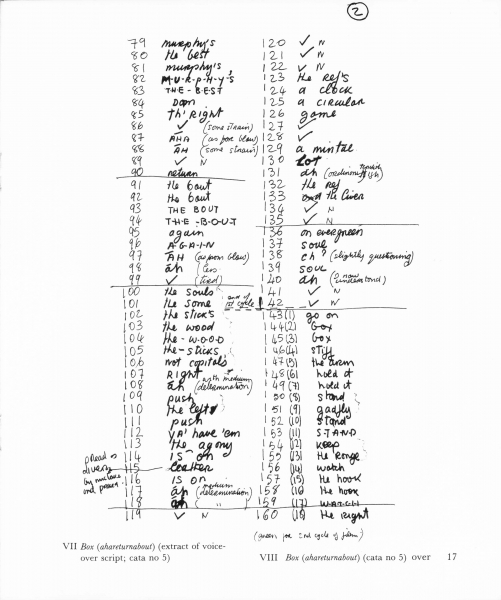 2
79 murphy's
80 the best
81 murphy's
82 M-U-R-P-H-Y'S
83 THE-BEST
84 Dam
85 th' Right
86 ✓ (some strain)
87 AHA (as poor blow)
88 AH (some strain)
89 ✓ N
90 return
91 the bout
92 the bout
93 THE BOUT
94 THE-BOUT
95 again
96 AGAIN
97 AH (as poor blow)
98 ah (less
99 ✓ (tired)
100 the souls
101 the some end of 1st cycle
102 the sticks
103 the wood
104 the-WOOD
105 the-sticks
106 not capitals
107 Right
108 ah (with medium determination)
109 push
110 the left
111 push
112 YA' have 'em
113 the agony
114 IS on
115 leather
116 IS on
117 ah (medium determination)
118 ah ( " )
119 ✓ N
120 ✓ N
121 ✓ N
122 ✓ N
123 the ref's
124 a clock
125 a circular
126 game
127 ✓
128 ✓
129 a mintal
130 lot
131 ah
132 the ref
133 the liver
134 ✓ N
135 ✓ N
136 on evergreen
137 soul
138 ch? (slightly questioning)
139 soul
140 ah (I now understand)
141 ✓ N
142 ✓ N
143 (1) go on
144 (2) box
145 (3) box
146 (4) stiff
147 (5) the arm
148 (6) hold it
149 (7) hold it
150 (8) stand
151 (9) gadfly
152 (10) stand
153 (11) STAND
154 (12) keep
155 (13) the range
156 (14) watch
157 (15) the hook
158 (16) the hook
159 (17) WATCH
160 (18) the Right
(given for 2nd cycle of film)
VII Box (ahareturnabout) (extract of voice-
over script; cata no 5)
VIII Box (ahareturnabout) (cata no 5) over 17